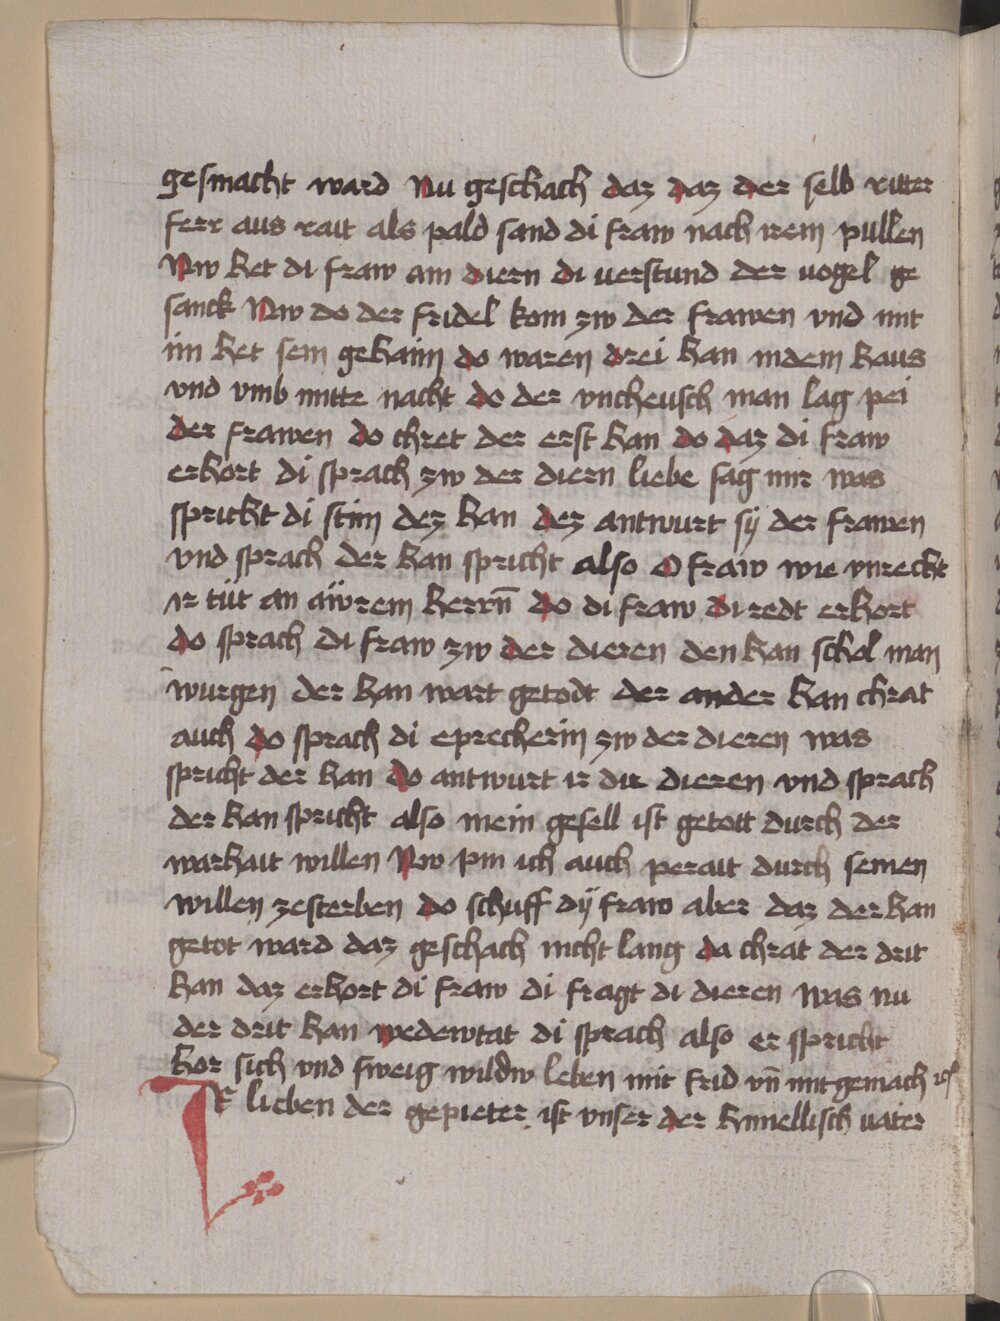 gesmacht ward Nu geschach daz daz der selb ritter
ferr aus rait als pald sand di fraw nach irem pullen
Nw het di fraw am diern di verstund der vogel ge
sanck Nw do der fridel kom zw der frawen vnd mit
im het sein gehaim do waren drei han in dem haus
vnd vmb mitte nacht do der vncheusch man lag pei
der frawen do chret der erst han do daz di fraw
erhort di sprach zw der diern liebe sag mir was
spricht di stim dez han dez antwurt sÿ der frawen
vnd sprach der han spricht also O fraw wie vnrecht
ir tüt an äwrem herrn̄ do di fraw di redt erhort
do sprach di fraw zw der dieren den han schol man
wurgen der han wart getodt der ander han chrat
auch do sprach di eprecherin zw der dieren was
spricht der han do antwurt ir die dieren vnd sprach
der han spricht also mein gesell ist getott durch der
warhait willen Nw pin ich auch perait durch seinen
willen zesterben do schuff dÿ fraw aber daz der han
getot ward daz geschach nicht lang da chrat der drit
han daz erhort di fraw di fragt di dieren was nu
der drit han wedewtat di sprach also er spricht
hor sich vnd sweig wildw leben mit frid vn̄ mit gemach
Ir lieben der gepieter ist vnser der himellisch vater